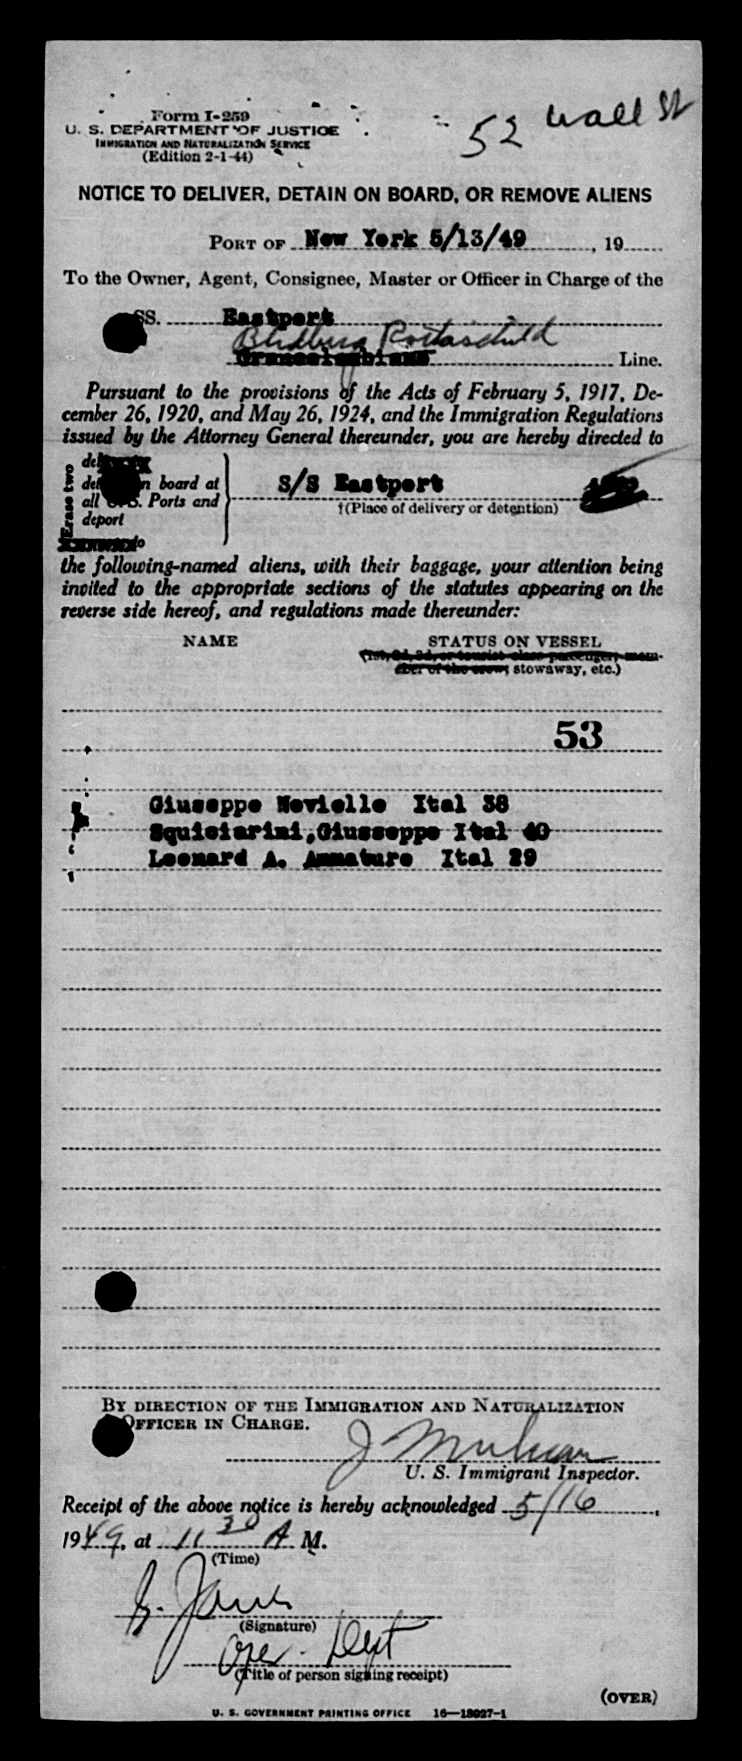 Form I-259
52 Wall St
U. S. DEPARTMENT OF JUSTICE
IMMIGRATION AND NATURALIZATION SERVICE
(Edition 2-1-44)
NOTICE TO DELIVER, DETAIN ON BOARD, OR REMOVE ALIENS
PORT OF New York 5/13/49, 19
To the Owner, Agent, Consignee, Master or Officer in Charge of the
SS. Eastport
Line.
Pursuant to the provisions of the Acts of February 5, 1917, De-
cember 26, 1920, and May 26, 1924, and the Immigration Regulations
issued by the Attorney General thereunder, you are hereby directed to
Erase two
board at S/S Eastport
all Ports and
†(Place of delivery or detention)
deport
to
the following-named aliens, with their baggage, your attention being
invited to the appropriate sections of the statutes appearing on the
reverse side hereof, and regulations made thereunder:
NAME STATUS ON VESSEL
(1st, 2d, 3d, or tourist class passenger, mem-
ber of the crew, stowaway, etc.)
53
Giuseppe Novielle Ital 38
Squiciarini, Giusseppe Ital 40
Leonard A. Ammature Ital 29
BY DIRECTION OF THE IMMIGRATION AND NATURALIZATION
OFFICER IN CHARGE.
J
U. S. Immigrant Inspector.
Receipt of the above notice is hereby acknowledged 5/16,
1949, at 11 30 A M.
(Time)
(Signature)
Oper. Dept
(Title of person signing receipt)
(OVER)
U. S. GOVERNMENT PRINTING OFFICE 16—18027-1